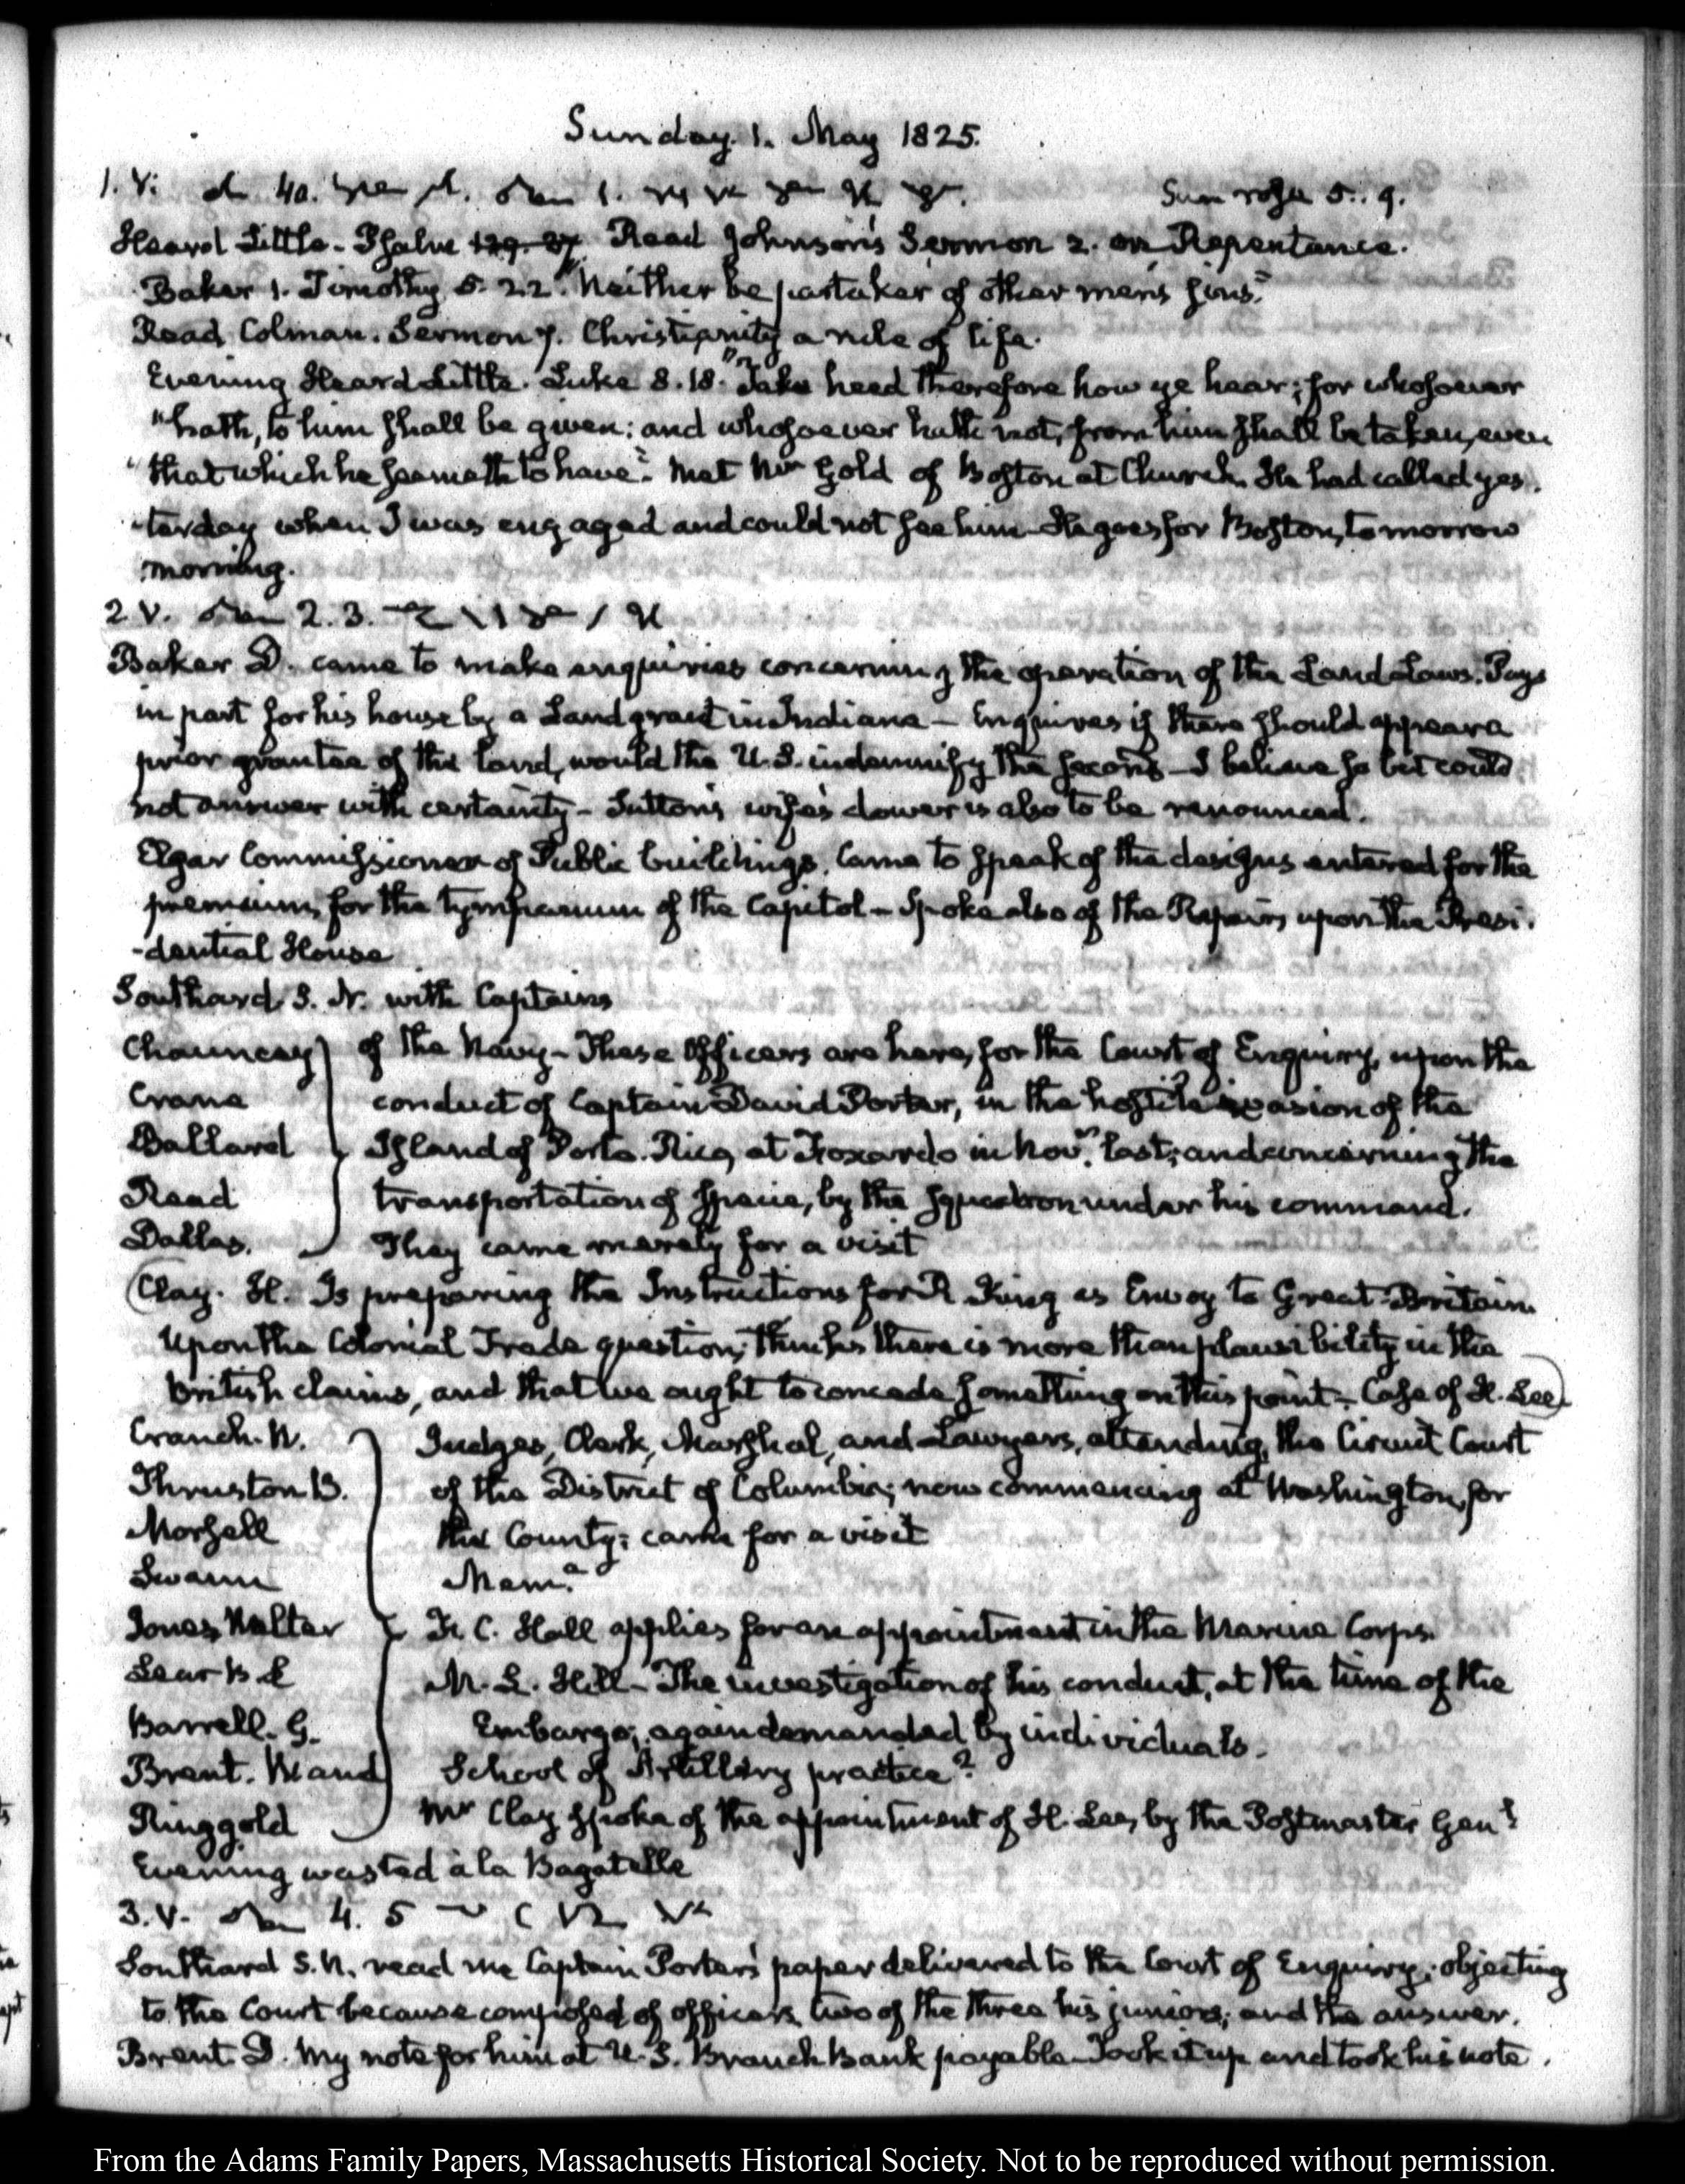 Sunday. 1. May 1825.
1. V: 40. 1. Sun rose 5.. 9.
Heard Little - Psalm 139. 24 Read Johnson's Sermon 2. on Repentance.
Baker 1. Timothy 5. 22. "Neither be partaker of other men's sins."
Read Colman. Sermon 7. Christianity a rule of life.
Evening Heard Little. Luke 8. 18. "Take heed therefore how ye hear; for whosoever
"hath, to him shall be given: and whosoever hath not, from him shall be taken, even
"that which he seemeth to have". Met Mr Gold of Boston at Church. He had called yes-
-terday when I was engaged and could not see him - He goes for Boston, tomorrow
morning.
2 V. 2. 3.
Baker D. came to make enquiries concerning the operation of the Land Laws. Pays
in part for his house by a Land grant in Indiana - Enquires if there should appear a
prior grantee of the land, would the U.S. indemnify the second - I believe so but could
not answer with certainty - Sutton's wife's dower is also to be renounced.
Elgar Commissioner of Public buildings. Came to speak of the designs entered for the
premium, for the tympanum of the Capitol - Spoke also of the Repairs upon the Presi-
-dential House
Southard S. N. with Captains
Chauncey of the Navy - These Officers are here, for the Court of Enquiry, upon the
Crane conduct of Captain David Porter, in the hostile invasion of the
Ballard Island of Porto-Rico, at Foxardo in Novr. last; and concerning the
Read transportation of specie, by the squadron under his command.
Dallas. They came merely for a visit
Clay. H. Is preparing the Instructions for R King as Envoy to Great-Britain.
Upon the Colonial Trade question, thinks there is more than plausibility in the
British claims, and that we ought to concede something on this point - Case of H. Lee
Cranch. W. Judges, Clerk, Marshal, and Lawyers, attending the Circuit Court
Thruston B. of the District of Columbia; now commencing at Washington, for
Morsell this County; came for a visit
Swann Mem.a
Jones Walter C. Hall applies for an appointment in the Marine Corps.
Lear B. L M. L. Hill - The investigation of his conduct, at the time of the
Barrell. G. Embargo; again demanded by individuals.
Brent. W and School of Artillery practice?
Ringgold Mr Clay spoke of the appointment of H. Lee, by the Postmaster Genl
Evening wasted à la Bagatelle
3. V. 4. 5
Southard S. N. read me Captain Porter's paper delivered to the Court of Enquiry; objecting
to the Court because composed of officers two of the three his juniors; and the answer.
Brent. D. My note for him at U.S. Branch Bank payable - Took it up and took his note.
From the Adams Family Papers, Massachusetts Historical Society. Not to be reproduced without permission.